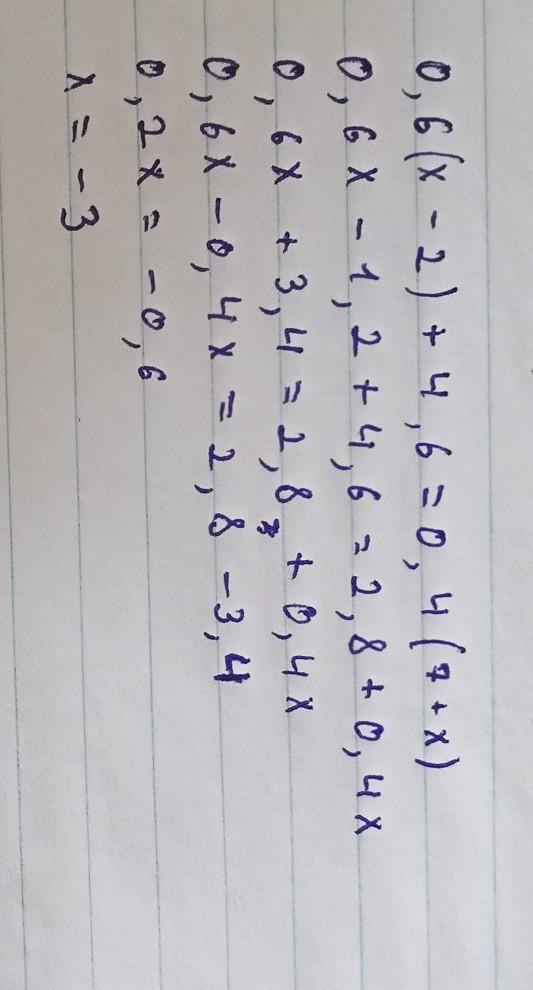 0,6(x - 2) + 4,6 = 0,4(7 + x)
0,6x - 1,2 + 4,6 = 2,8 + 0,4x
0,6x + 3,4 = 2,8 + 0,4x
0,6x - 0,4x = 2,8 - 3,4
0,2x = -0,6
x = -3